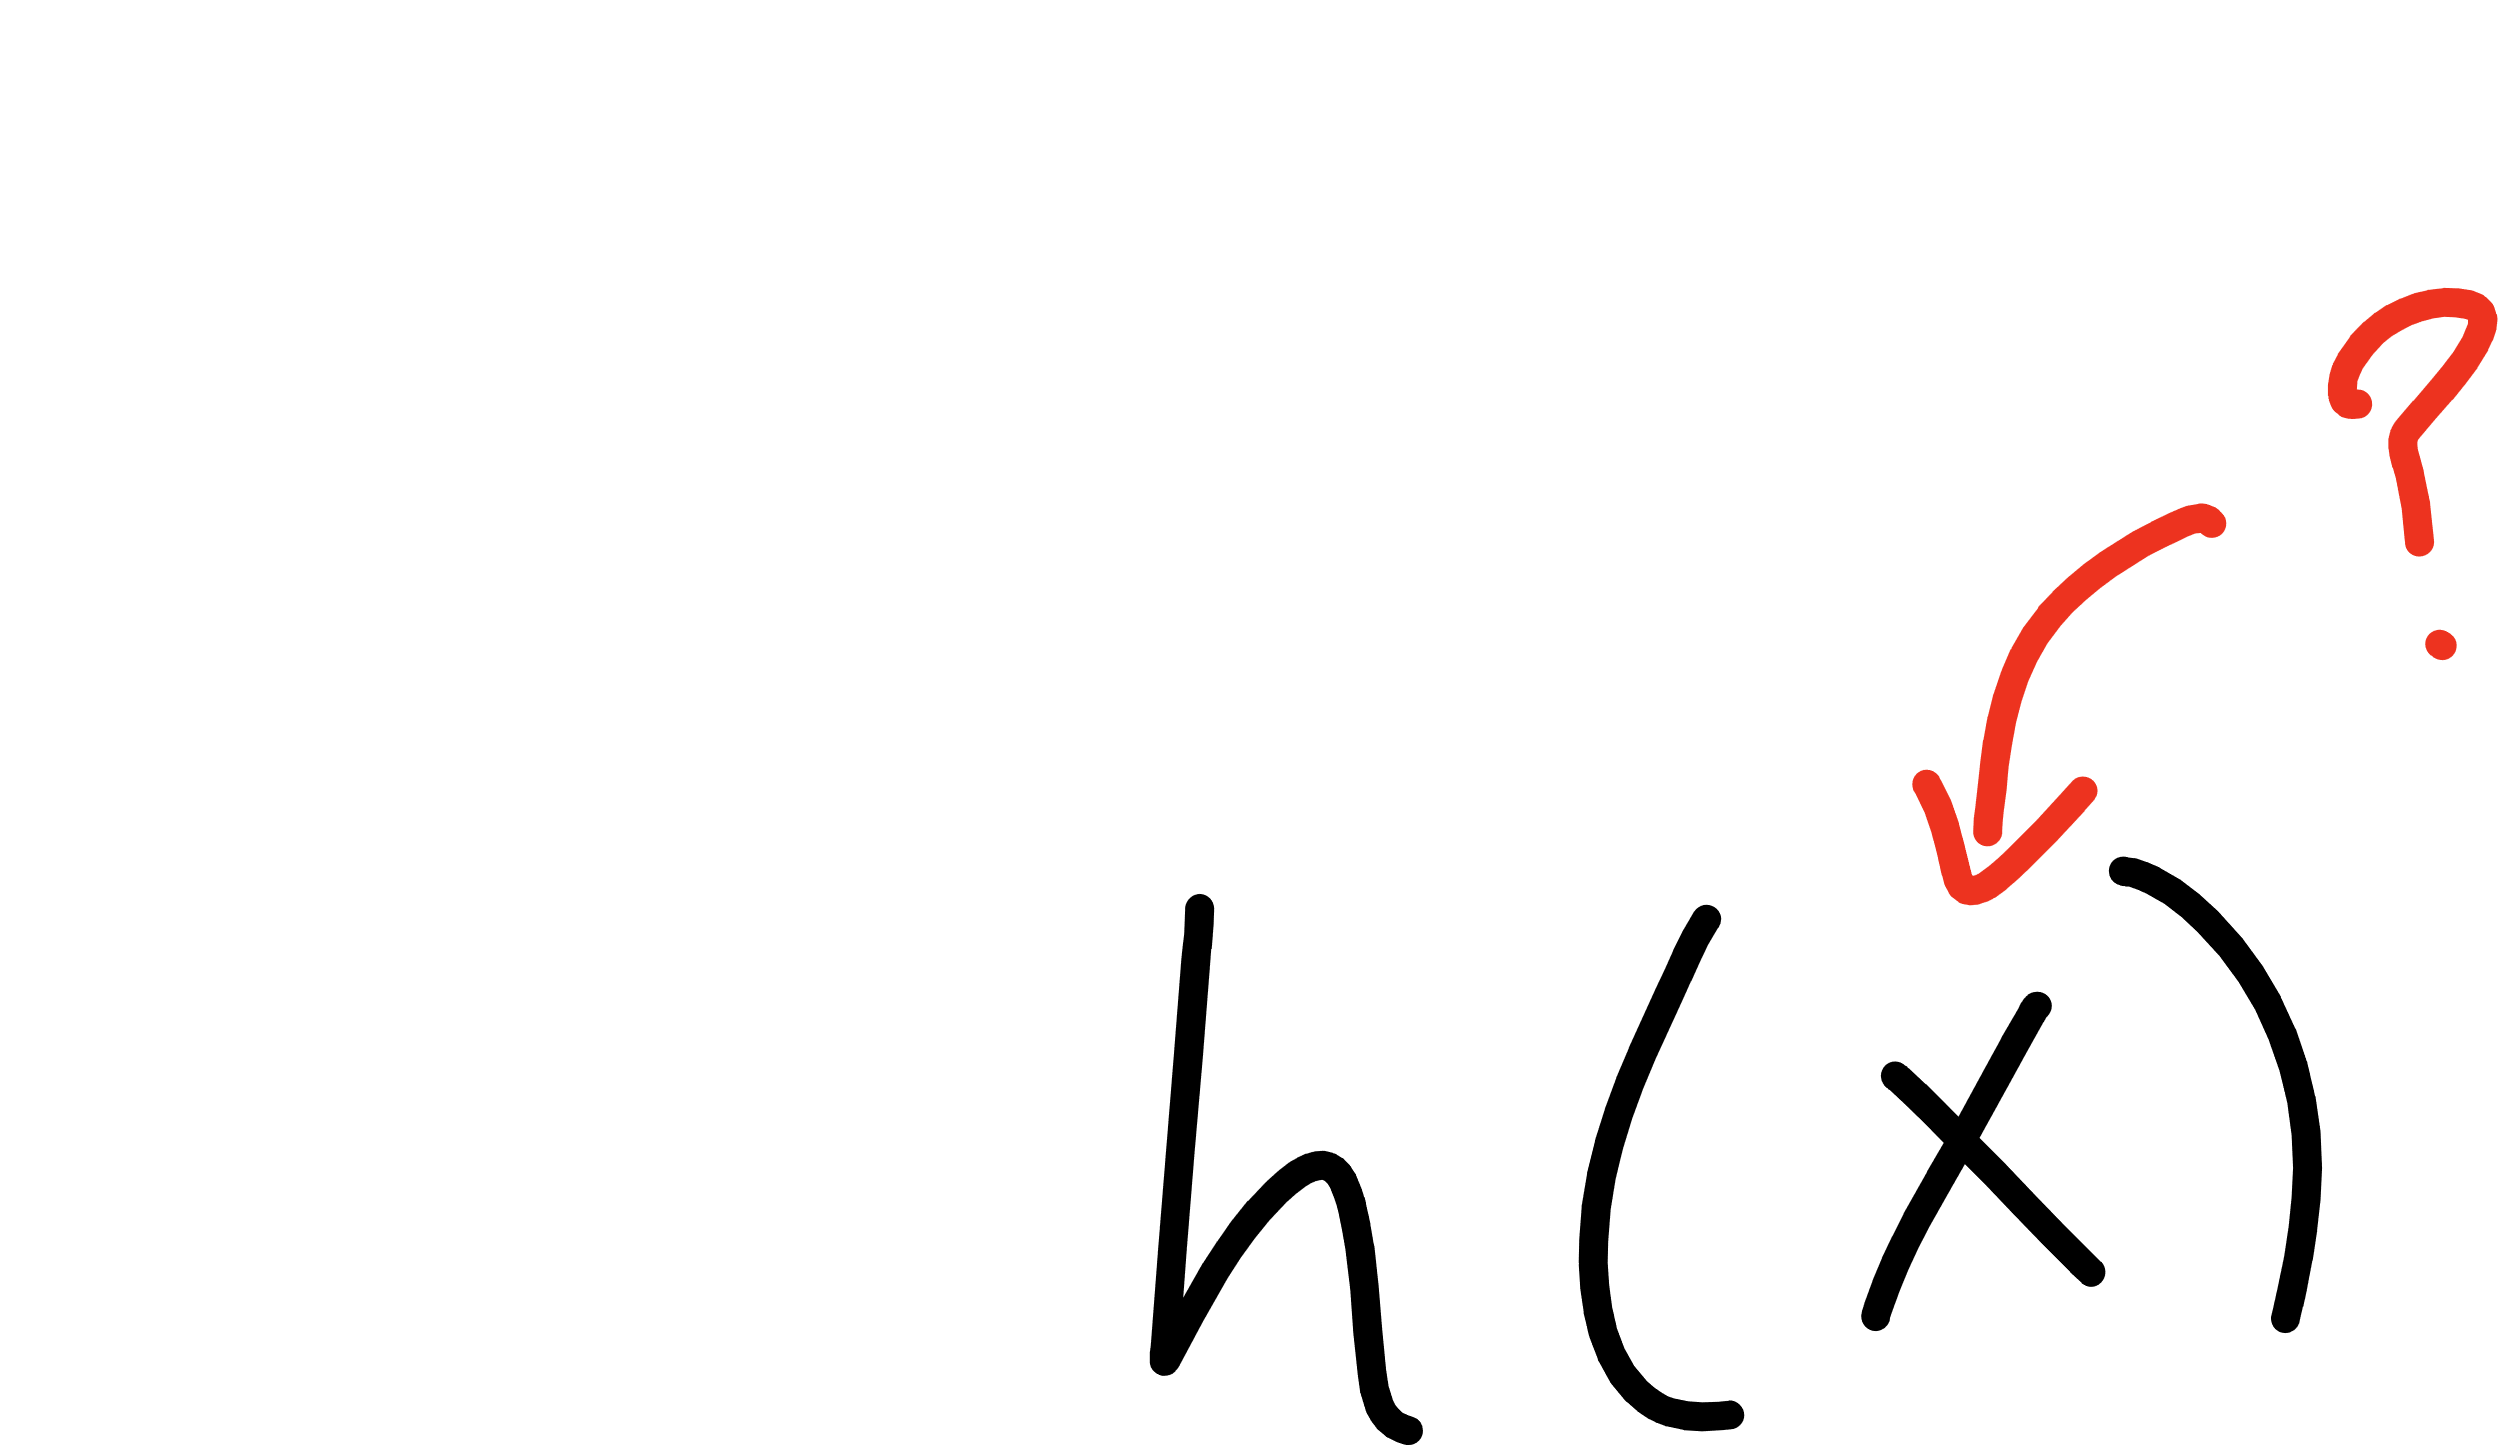 ?
h(x)